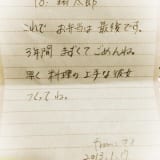 To: 樹太郎
これで お弁当は 最後です。
3年間 まずくて ごめんね。
早く 料理の 上手な 彼女
つくってね。
from
2013.1.17